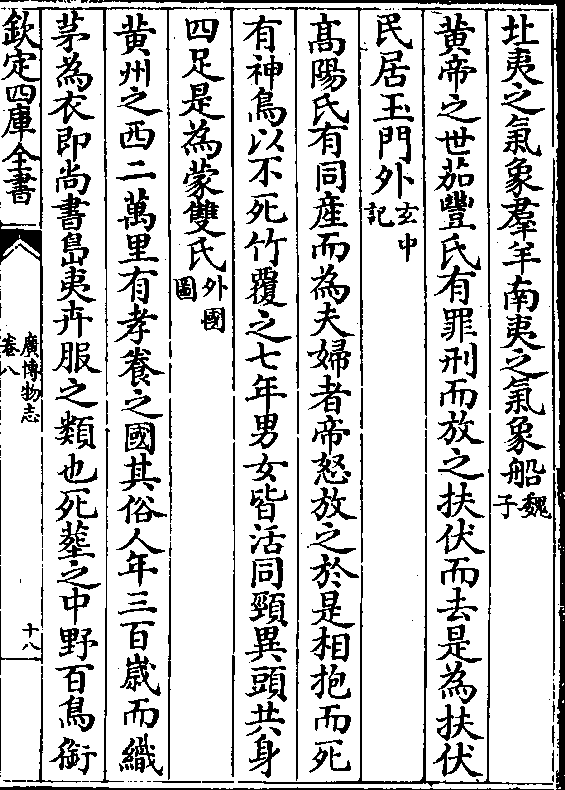 北夷之氣象羣羊南夷之氣象船魏子
黄帝之世茄豐氏有罪刑而放之扶伏而去是為扶伏
民居玉門外玄中記
髙陽氏有同産而為夫婦者帝怒放之於是相抱而死
有神鳥以不死竹覆之七年男女皆活同頸異頭共身
四足是為蒙雙氏外國圖
黄州之西二萬里有孝養之國其俗人年三百歲而織
茅為衣即尚書島夷卉服之類也死塟之中野百鳥銜
欽定四庫全書
廣博物志
卷八
十八